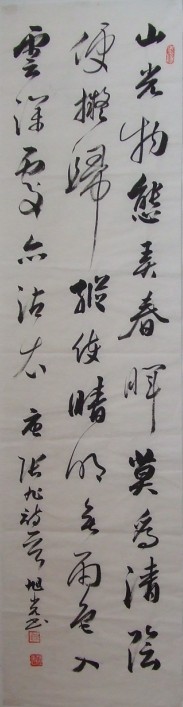 山光物態弄春暉莫為清陰
便擬歸縱使晴明無雨色入
雲深處亦沾衣 唐張旭詩